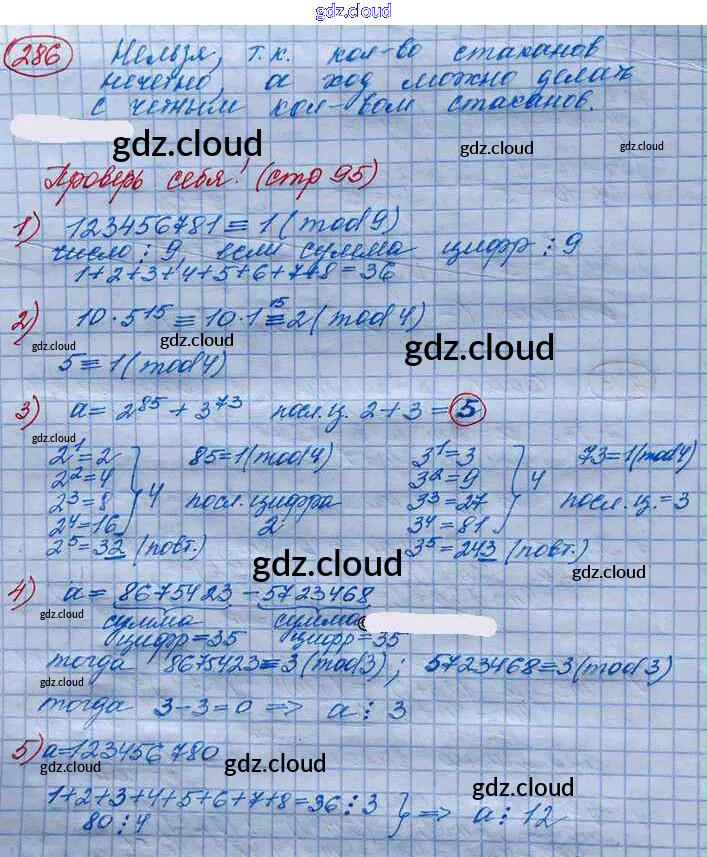 gdz.cloud
286 Нельзя, т.к. кол-во стаканов
нечетно, а ход можно делать
с четным кол-вом стаканов.
gdz.cloud gdz.cloud gdz.cloud
Проверь себя! (стр 95)
1) 123456781 ≡ 1 (mod 9)
число ⋮ 9, если сумма цифр ⋮ 9
1+2+3+4+5+6+7+8=36
2) 10·5¹⁵ ≡ 10·1¹⁵ ≡ 2 (mod 4)
gdz.cloud gdz.cloud gdz.cloud
5 ≡ 1 (mod 4)
3) a = 2⁸⁵ + 3⁷³ посл.ц. 2+3=5
gdz.cloud
2¹=2 85=1(mod4) 3¹=3 73=1(mod4)
2²=4 3²=9
2³=8 } 4 посл. цифра 3³=27 } 4 посл. ц.=3
2⁴=16 2 3⁴=81
2⁵=32 (повт.) 3⁵=243 (повт.)
gdz.cloud gdz.cloud
4) a = 8675423 - 5723468
gdz.cloud сумма сумма
цифр=35 цифр=35
тогда 8675423≡3(mod3); 5723468≡3(mod3)
gdz.cloud
тогда 3-3=0 => a ⋮ 3
5) a=123456780
gdz.cloud gdz.cloud gdz.cloud
1+2+3+4+5+6+7+8=36 ⋮ 3 } => a ⋮ 12
80 ⋮ 4